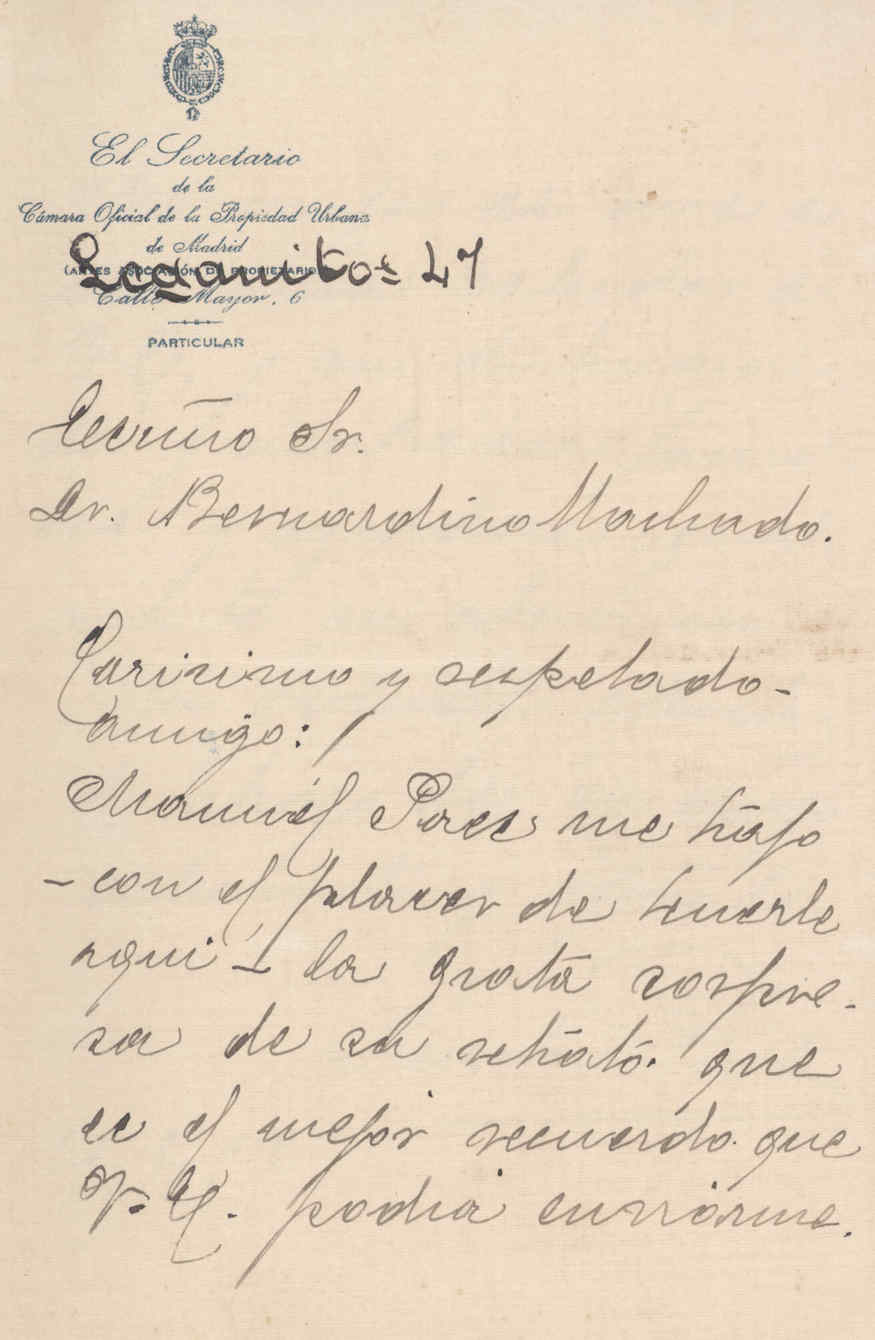 El Secretario
de la
Cámara Oficial de la Propiedad Urbana
de Madrid
(ANTES ASOCIACIÓN DE PROPIETARIOS)
Leganitos 47
Calle Mayor, 6
PARTICULAR
Excmo Sr.
Dr. Bernardino Machado.
Carisimo y respetado
amigo:
Manuel Paes me trajo
- con el placer de tenerle
aqui - la grata sorpre-
sa de su retrato. que
es el mejor recuerdo que
V. E. podia enviarme.